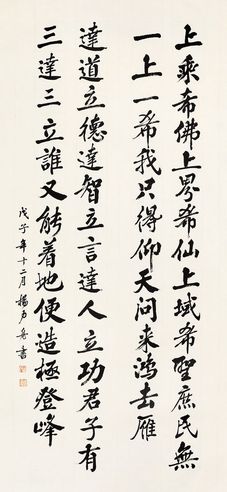 上乘希佛上界希仙上域希聖庶民無
一上一希我只得仰天问来鸿去雁
達道立德達智立言達人立功君子有
三達三立誰又能着地便造極登峰
戊子年十二月楊书書